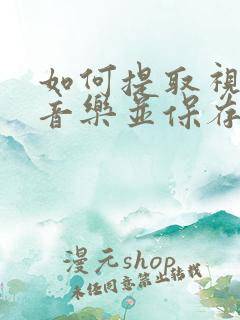 如何提取視
音樂並保存
漫元shop
未經同意禁止轉載